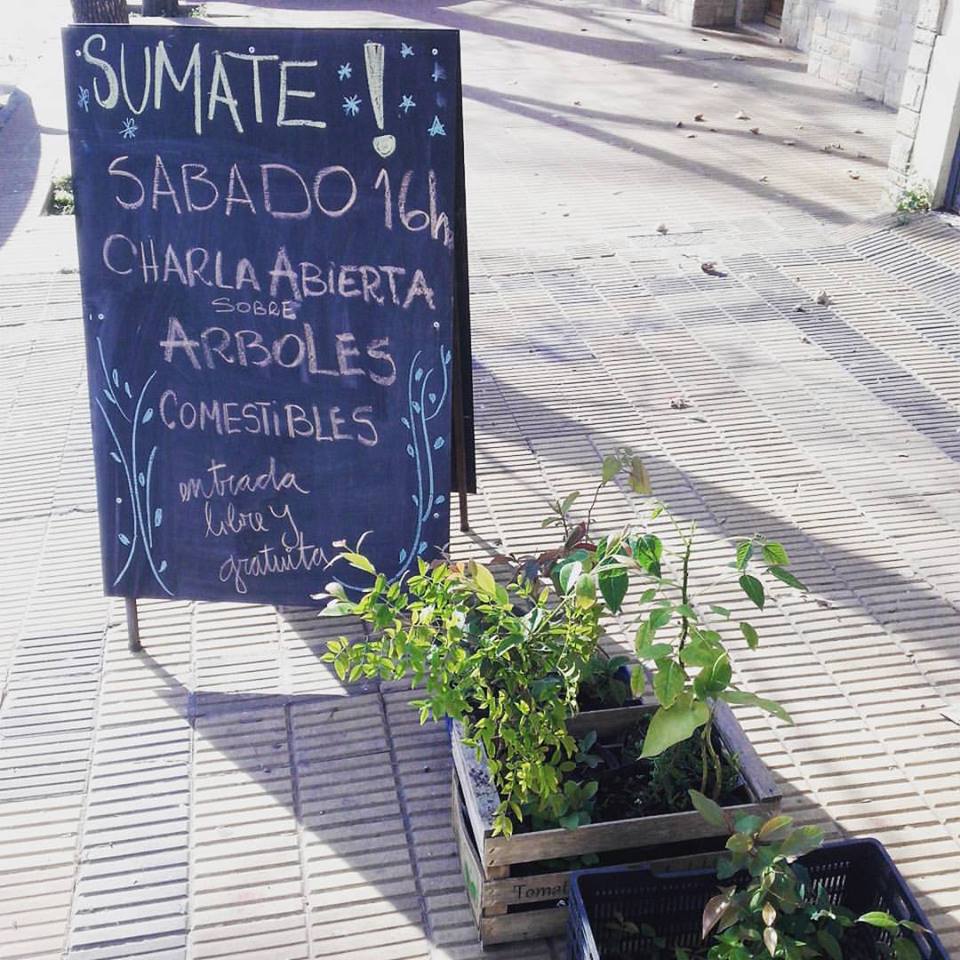 SUMATE!
SABADO 16h
CHARLA ABIERTA
SOBRE
ARBOLES
COMESTIBLES
entrada
libre y
gratuita
Tomat